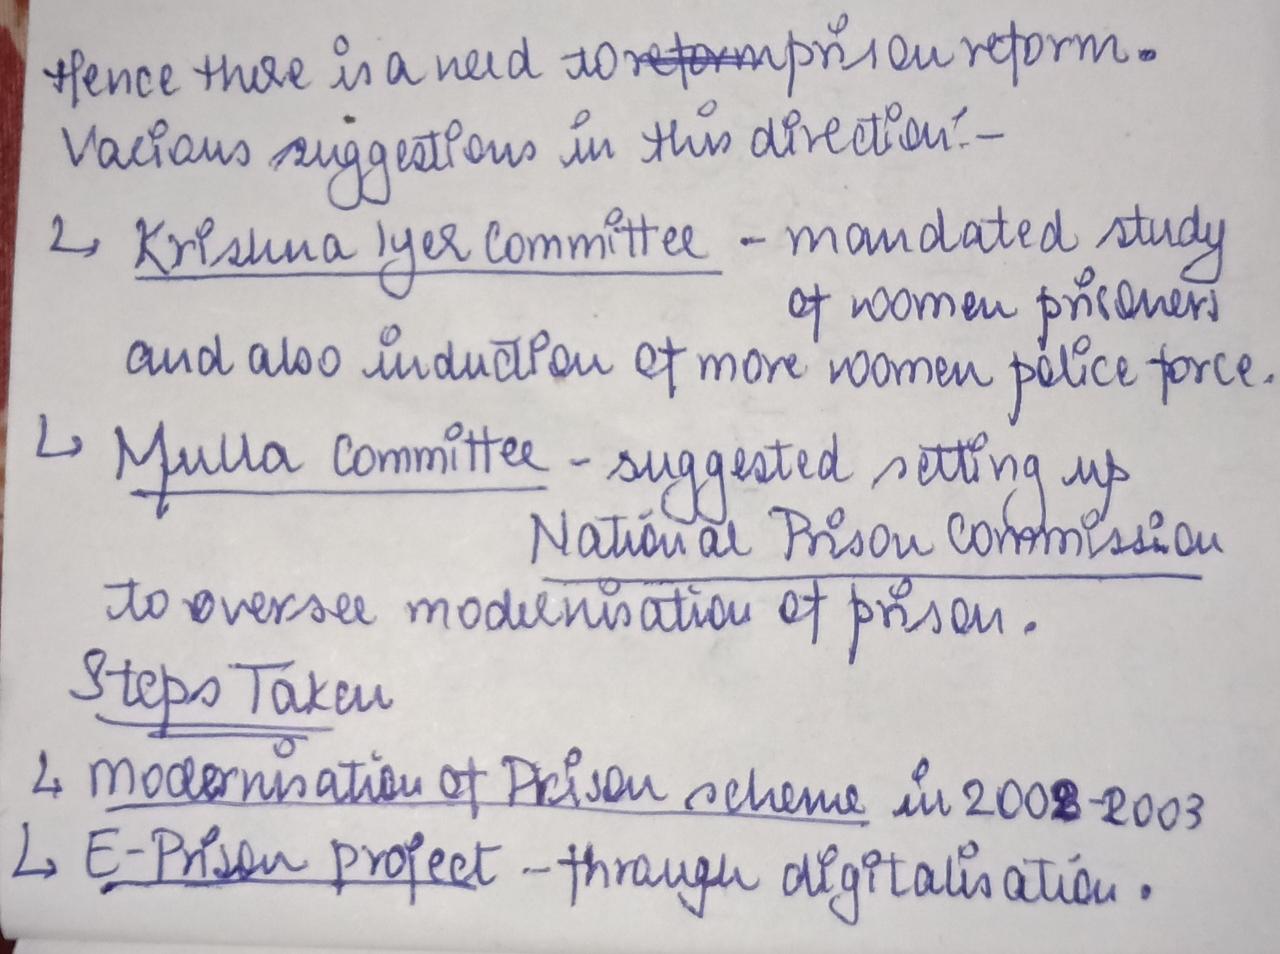 Hence there is a need to reform prison reform.
Various suggestions in this direction:-
↳ Krishna Iyer Committee - mandated study
of women prisoners
and also induction of more women police force.
↳ Mulla Committee - suggested setting up
National Prison Commission
to oversee modernisation of prison.
Steps Taken
↳ Modernisation of Prison scheme in 2002-2003
↳ E-Prison project - through digitalisation.